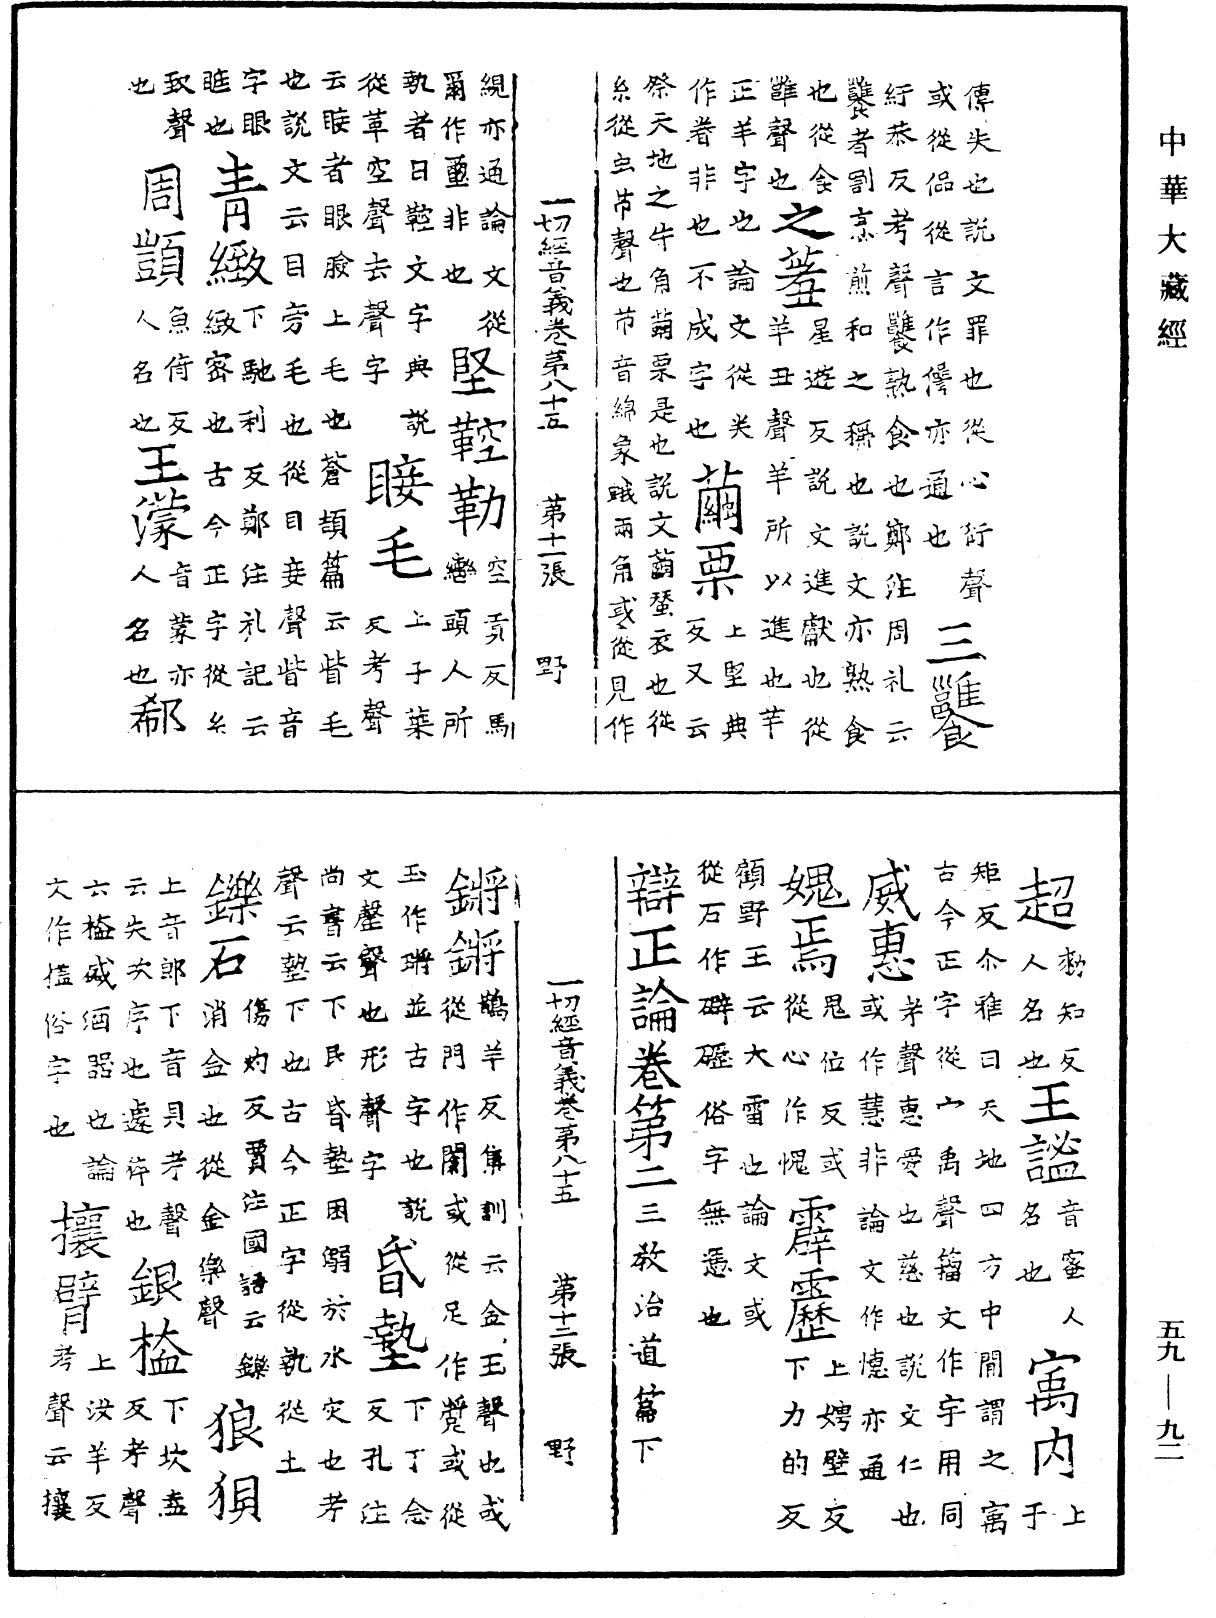 中華大藏經
傳失也說文罪也從心衍聲
或從侃從言作諐亦通也
三雝食
紆恭反考聲饔熟食也鄭注周礼云
饔者割烹煎和之稱也說文亦熟食
也從食雝聲也
之羞
星遊反說文進獻也從
羊丑聲羊所以進也羊
正羊字也論文從㒸
作着非也不成字也
繭栗
上堅典反又云
祭天地之牛角繭栗是也說文蠒蝅衣也從
糸從虫芇聲也芇音綿象蛾兩角或從見作
一切經音義卷第八十五　第十一張　野
絸亦通論文從
爾作𧝞非也
堅鞚勒
空貢反馬
轡頭人所
執者曰鞚文字典說
從革空聲去聲字
䀹毛
上子葉
反考聲
云䀹者眼瞼上毛也蒼頡篇云眥毛
也說文云目旁毛也從目妾聲眥音
字眼眶也
青緻
下馳利反鄭注礼記云
緻密也古今正字從糸
致聲也
周顗
魚倚反
人名也
王濛
音蒙亦
人名也
郗
超
勑知反
人名也
王謐
音蜜人
名也
寓內
上于
矩反尒雅曰天地四方中間謂之寓
古今正字從宀禹聲籀文作宇用同
威惠
考聲惠愛也慈也說文仁也
或作慧非論文作憓亦通
媿焉
鬼位反或
從心作愧
霹靂
上娉壁反
下力的反
顧野王云大雷也論文或
從石作礔礰俗字無憑也
辯正論卷第二 三教治道篇下
一切經音義卷第八十五　第十二張　野
鏘鏘
鵲羊反集訓云金玉聲也或
從門作閶或從足作蹡或從
玉作瑲並古字也說
文鏧聲也形聲字
昏墊
下丁念
反孔注
尚書云下民昏墊困溺於水灾也考
聲云墊下也古今正字從執從土
鑠石
傷灼反賈注國語云鑠
消金也從金樂聲
狼狽
上音郎下音貝考聲
云失次序也遽猝也
銀榼
下坎盍
反考聲
云榼盛酒器也論
文作搕俗字也
攘臂
上汝羊反
考聲云攘
五九—九二